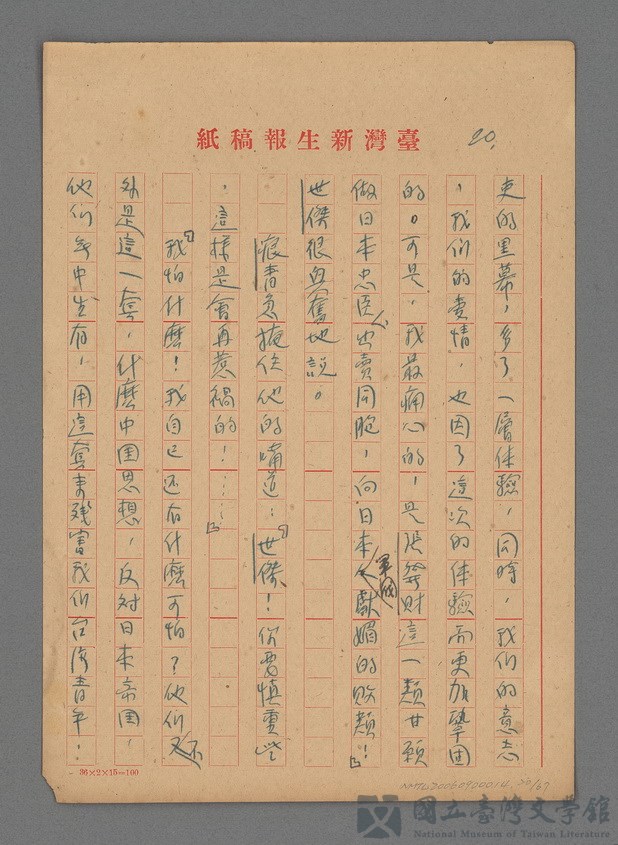 臺灣新生報稿紙
20.
更的黑幕，多了一層体驗，同時，我们的意志
，我们的妻情，也因了這次的体驗而更加鞏固
的。可是，我最痛心的，是張發財這一類甘願
做日本忠臣，出賣同胞，向日本軍閥獻媚的敗類！」
世傑很興奮地說。
痕青急掩住他的嘴道：「世傑！你要慎重些
，這樣是會再惹禍的！……」
「我怕什麼！我自己还有什麼可怕？他们不
外是這一套，什麼中国思想，反对日本帝国，
他们年中生有，用這套來残害我们台湾青年！
36×2×15=100
NMTL20060900014 20/67
國立臺灣文學館
National Museum of Taiwan Literature